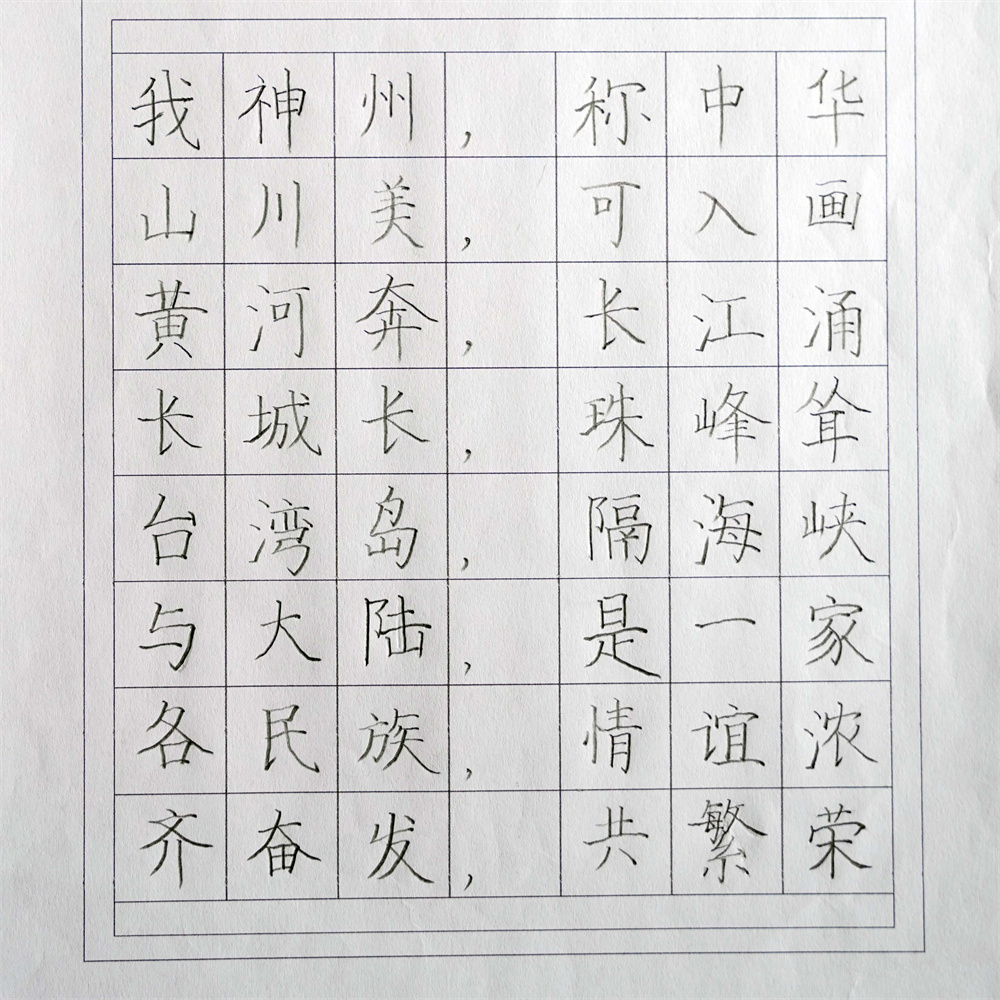 我神州，称中华
山川美，可入画
黄河奔，长江涌
长城长，珠峰耸
台湾岛，隔海峡
与大陆，是一家
各民族，情谊浓
齐奋发，共繁荣